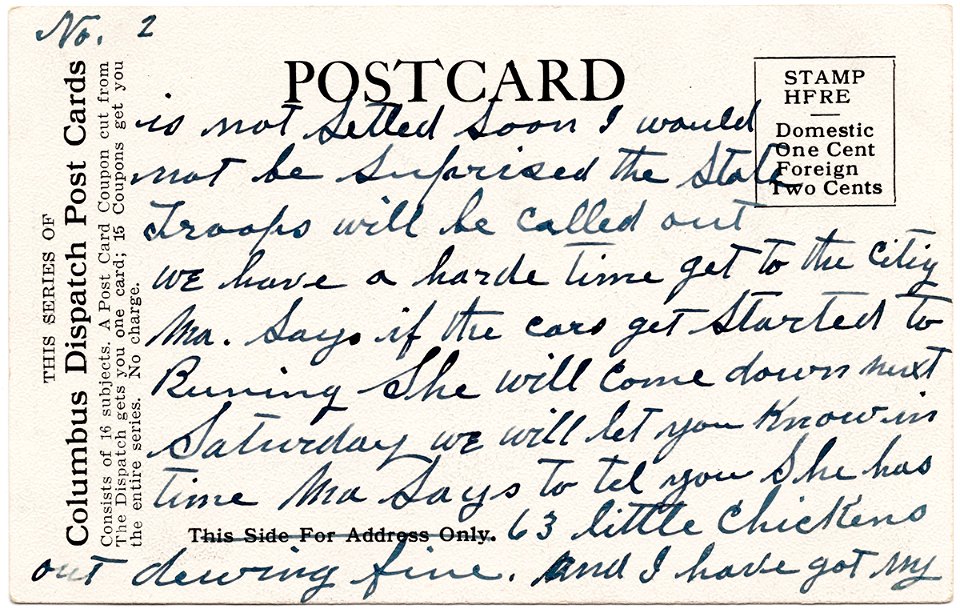 No. 2
THIS SERIES OF
Columbus Dispatch Post Cards
Consists of 16 subjects. A Post Card Coupon cut from
The Dispatch gets you one card; 15 Coupons get you
the entire series. No charge.
POSTCARD
STAMP
HERE
Domestic
One Cent
Foreign
Two Cents
is not Setled Soon I would
not be Suprised the State
Troops will be called out
we have a harde time get to the Citiy
Ma. Says if the cars get Started to
Runing She will Come down next
Saturday we will let you Know in
time Ma Says to tel you She has
This Side For Address Only.
63 little Chickens
out dewing fine. And I have got my